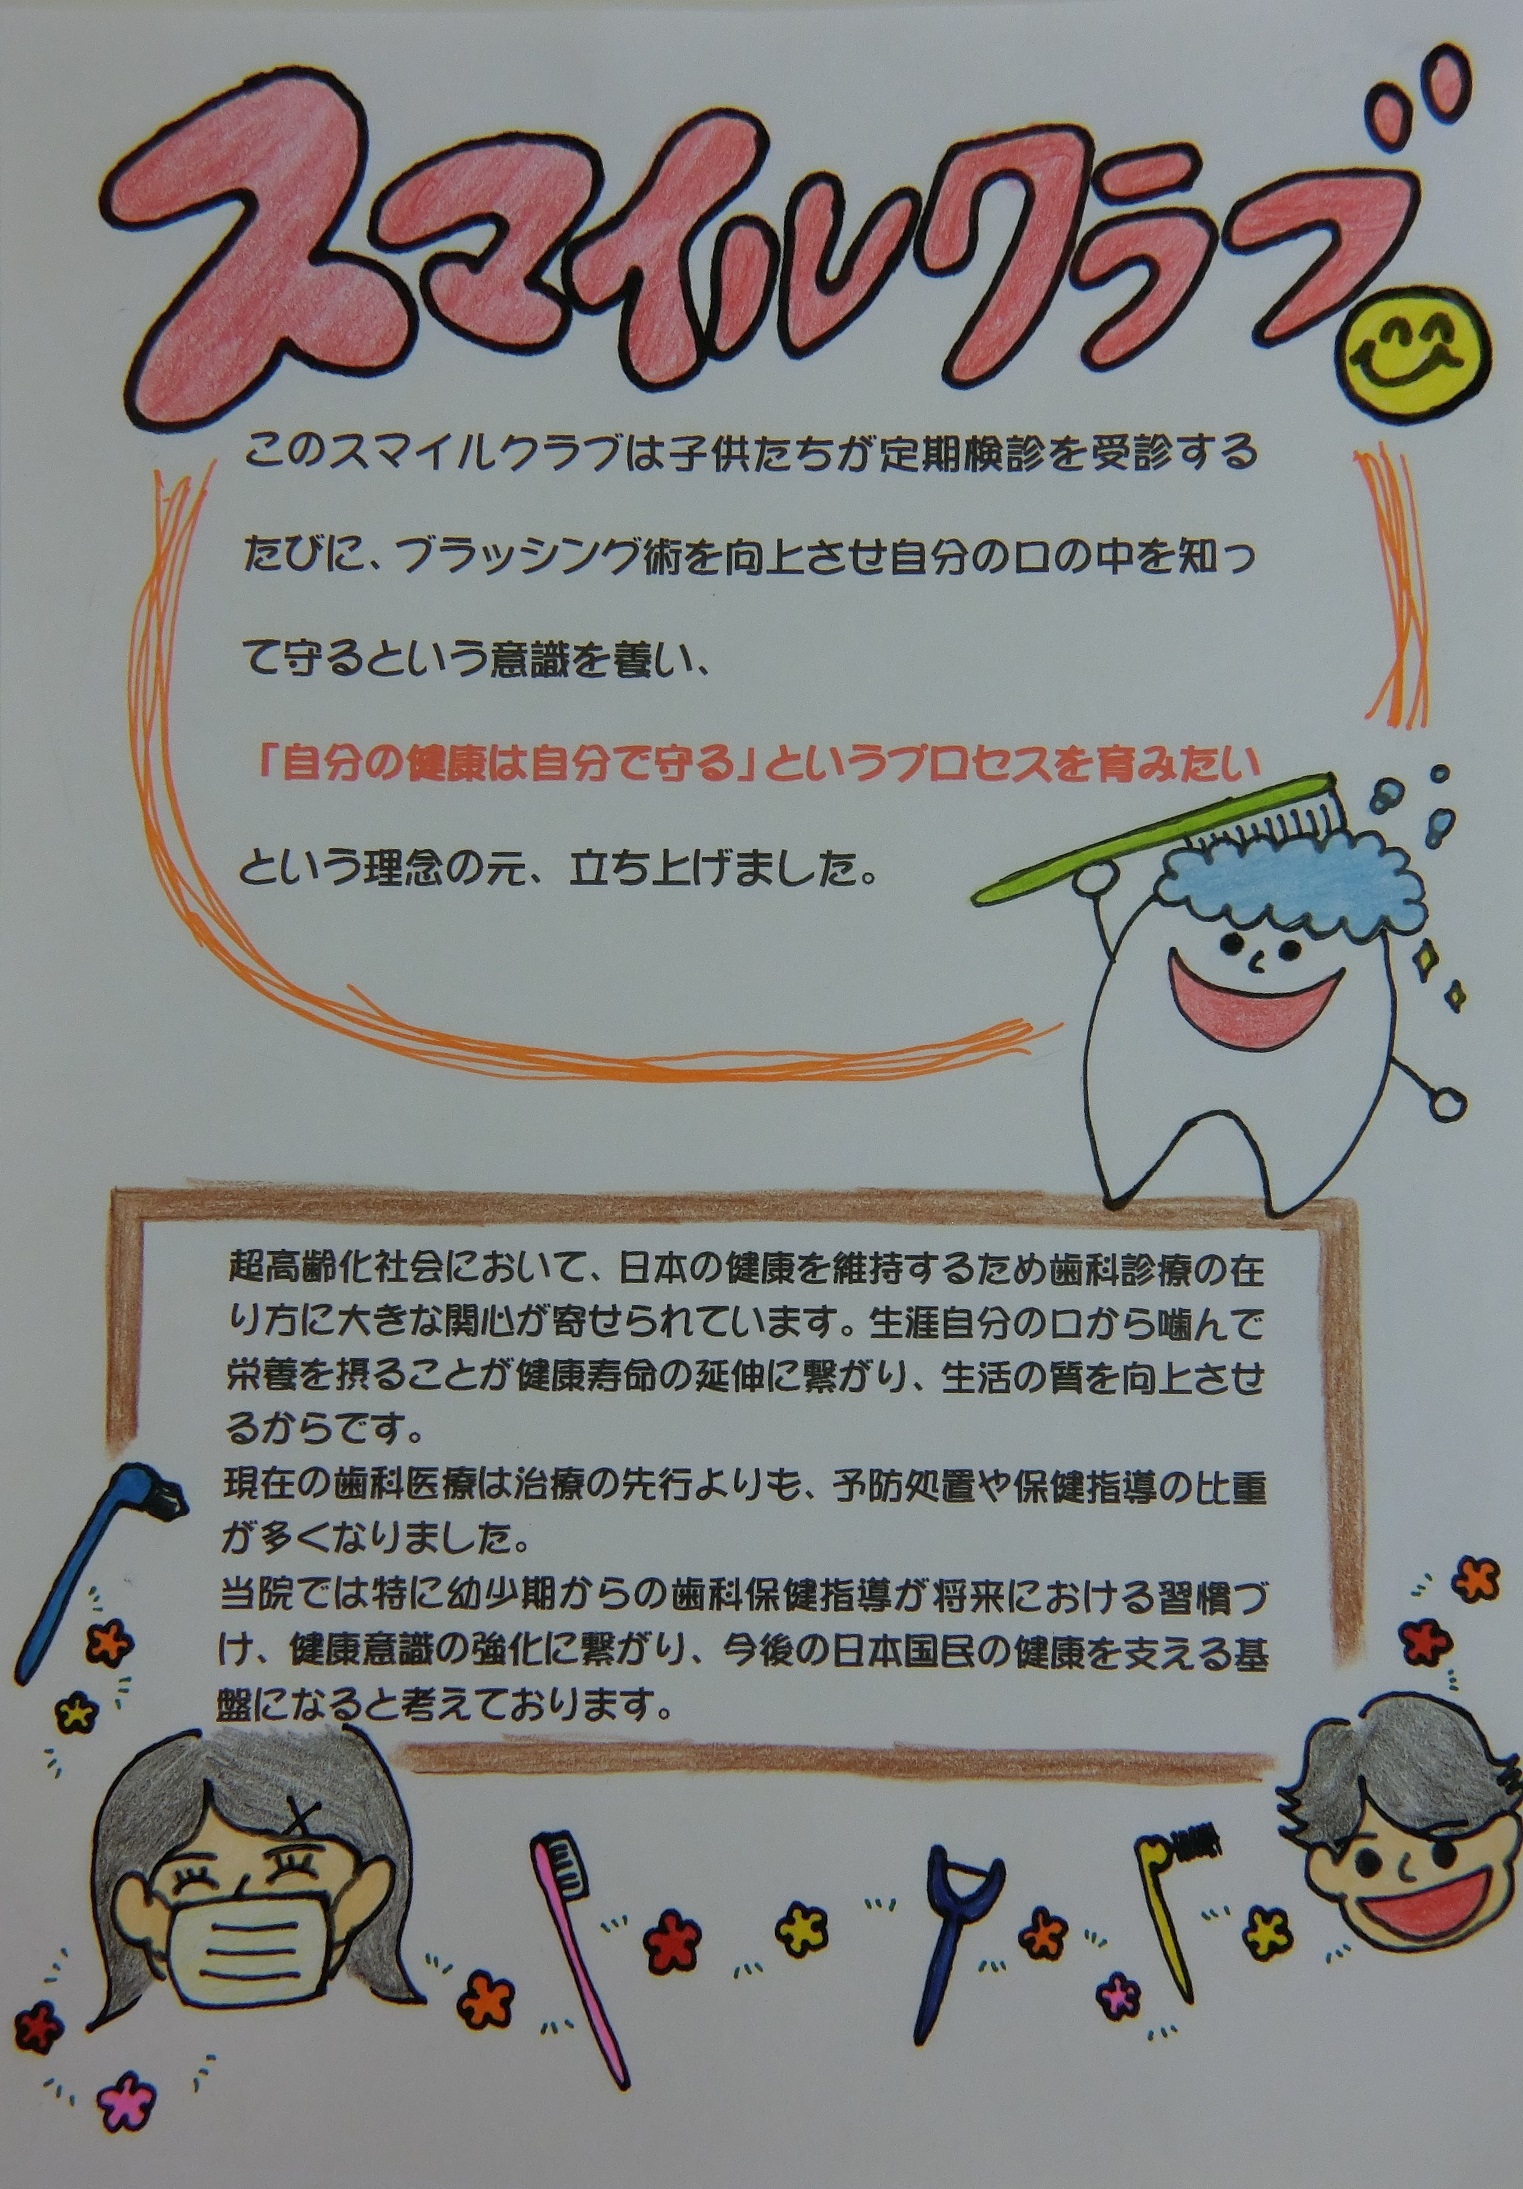 スマイルクラブ
このスマイルクラブは子供たちが定期検診を受診する
たびに、ブラッシング術を向上させ自分の口の中を知っ
て守るという意識を養い、
「自分の健康は自分で守る」というプロセスを育みたい
という理念の元、立ち上げました。
超高齢化社会において、日本の健康を維持するため歯科診療の在
り方に大きな関心が寄せられています。生涯自分の口から噛んで
栄養を摂ることが健康寿命の延伸に繋がり、生活の質を向上させ
るからです。
現在の歯科医療は治療の先行よりも、予防処置や保健指導の比重
が多くなりました。
当院では特に幼少期からの歯科保健指導が将来における習慣づ
け、健康意識の強化に繋がり、今後の日本国民の健康を支える基
盤になると考えております。